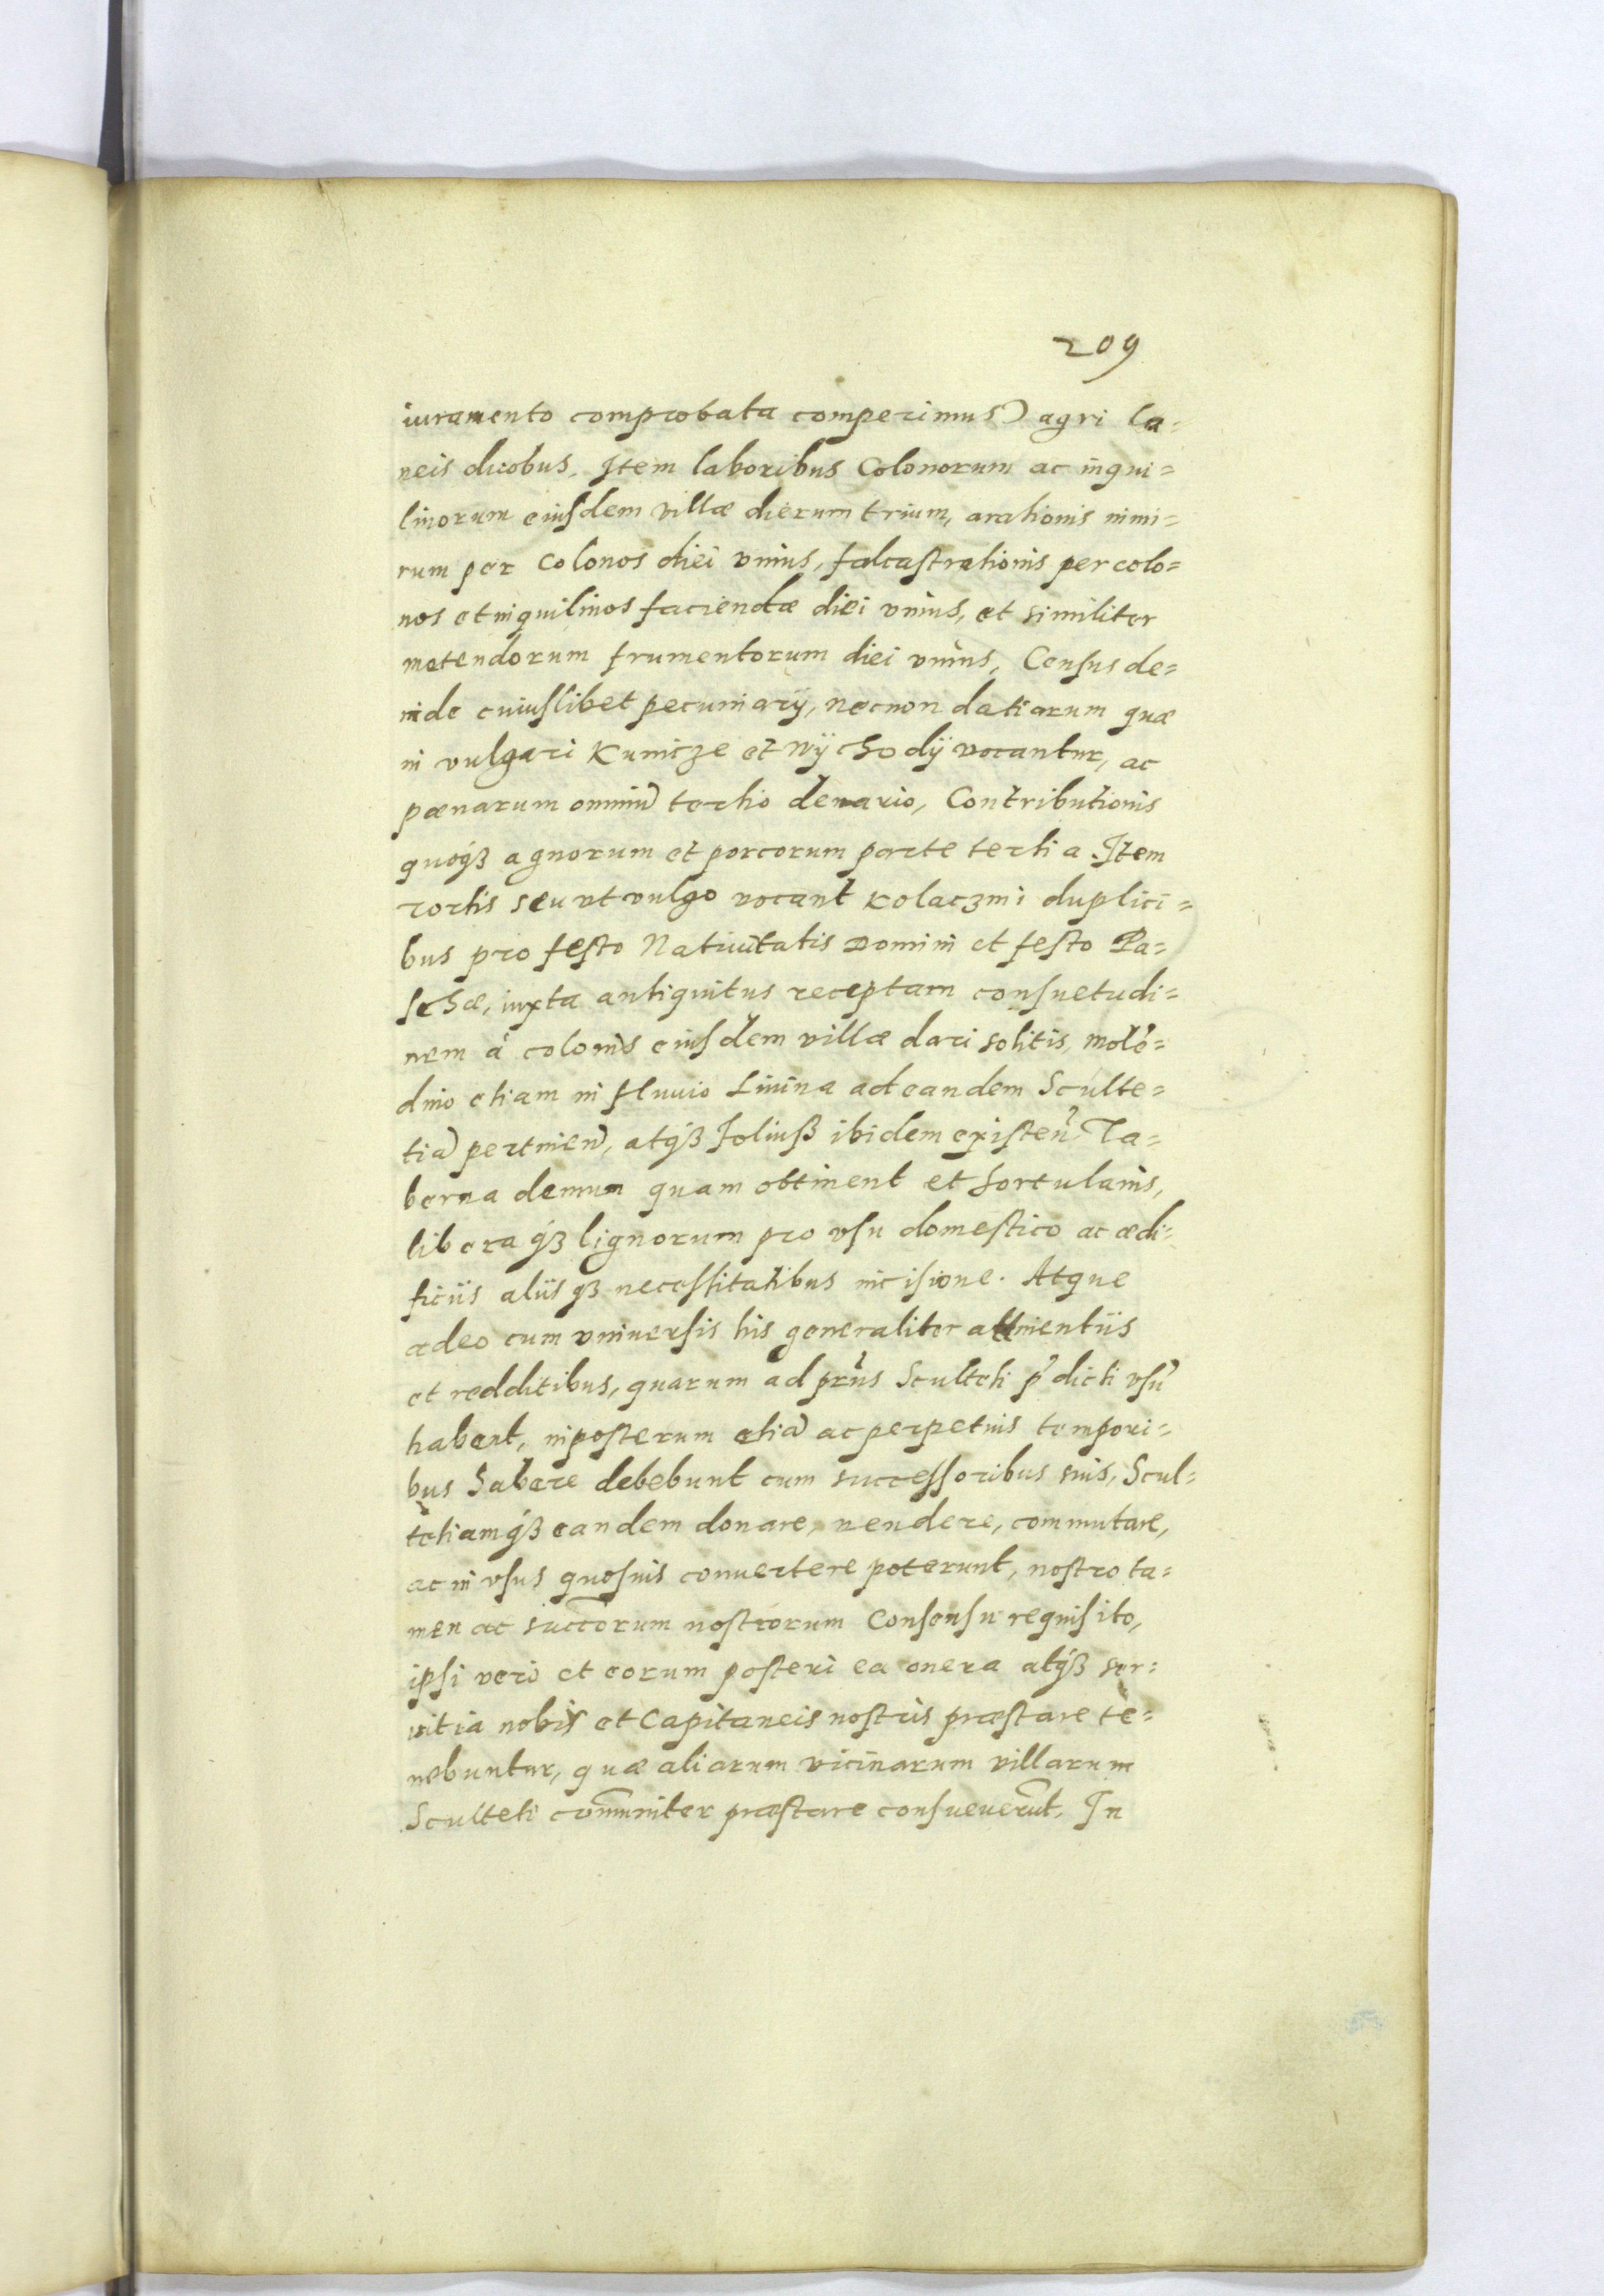 209
iuramento comprobata comperimus) agri la=
neis duobus. Item laboribus Colonorum ac inqui=
linorum eiusdem villæ dierum trium, arationis nimi=
rum per Colonos diei vnius, falcastrationis per colo=
nos et inquilinos faciendæ diei vnius, et similiter
metendorum frumentorum diei vnius, Census de=
inde cuiuslibet pecuniarÿ, necnon datiarum quæ
in vulgari Kunicze et Wÿchodÿ vocantur, ac
pœnarum omniũ tertio denario, Contributionis
quoqȝ agnorum et porcorum parte tertia. Item
tortis seu vt vulgo vocant Kolaczmi duplici=
bus pro festo Natiuitatis Domini et festo Pa=
schæ, iuxta antiquitus receptam consuetudi=
nem à colonis eiusdem villæ dari solitis, molẽ=
dino etiam in fluuio Liuina ad eandem Sculte=
tiã pertinen̄, atqȝ foliusß ibidem existen̄ Ta=
berna demum quam obtinent et hortulanis,
libera qȝ lignorum pro vsu domestico ac ædi=
ficiis aliisqȝ necessitatibus incisione. Atque
adeo cum vniuersis his generaliter attinentiis
et redditibus, quarum ad prn̄s Sculteti p̃dicti vsũ
habent, inposterum etiã ac perpetuis tempori=
bus habere debebunt cum successoribus suis, Scul=
tetiamqȝ eandem donare, vendere, commutare,
ac in vsus quosuis conuertere poterunt, nostro ta=
men ac succorum nostrorum Consensu requisito,
ipsi verò et eorum posteri ea onera atqȝ ser=
uitia nobis et Capitaneis nostris præstare te=
nebuntur, quæ aliarum vicinarum villarum
Sculteti com̄uniter præstare consueuerũt. In